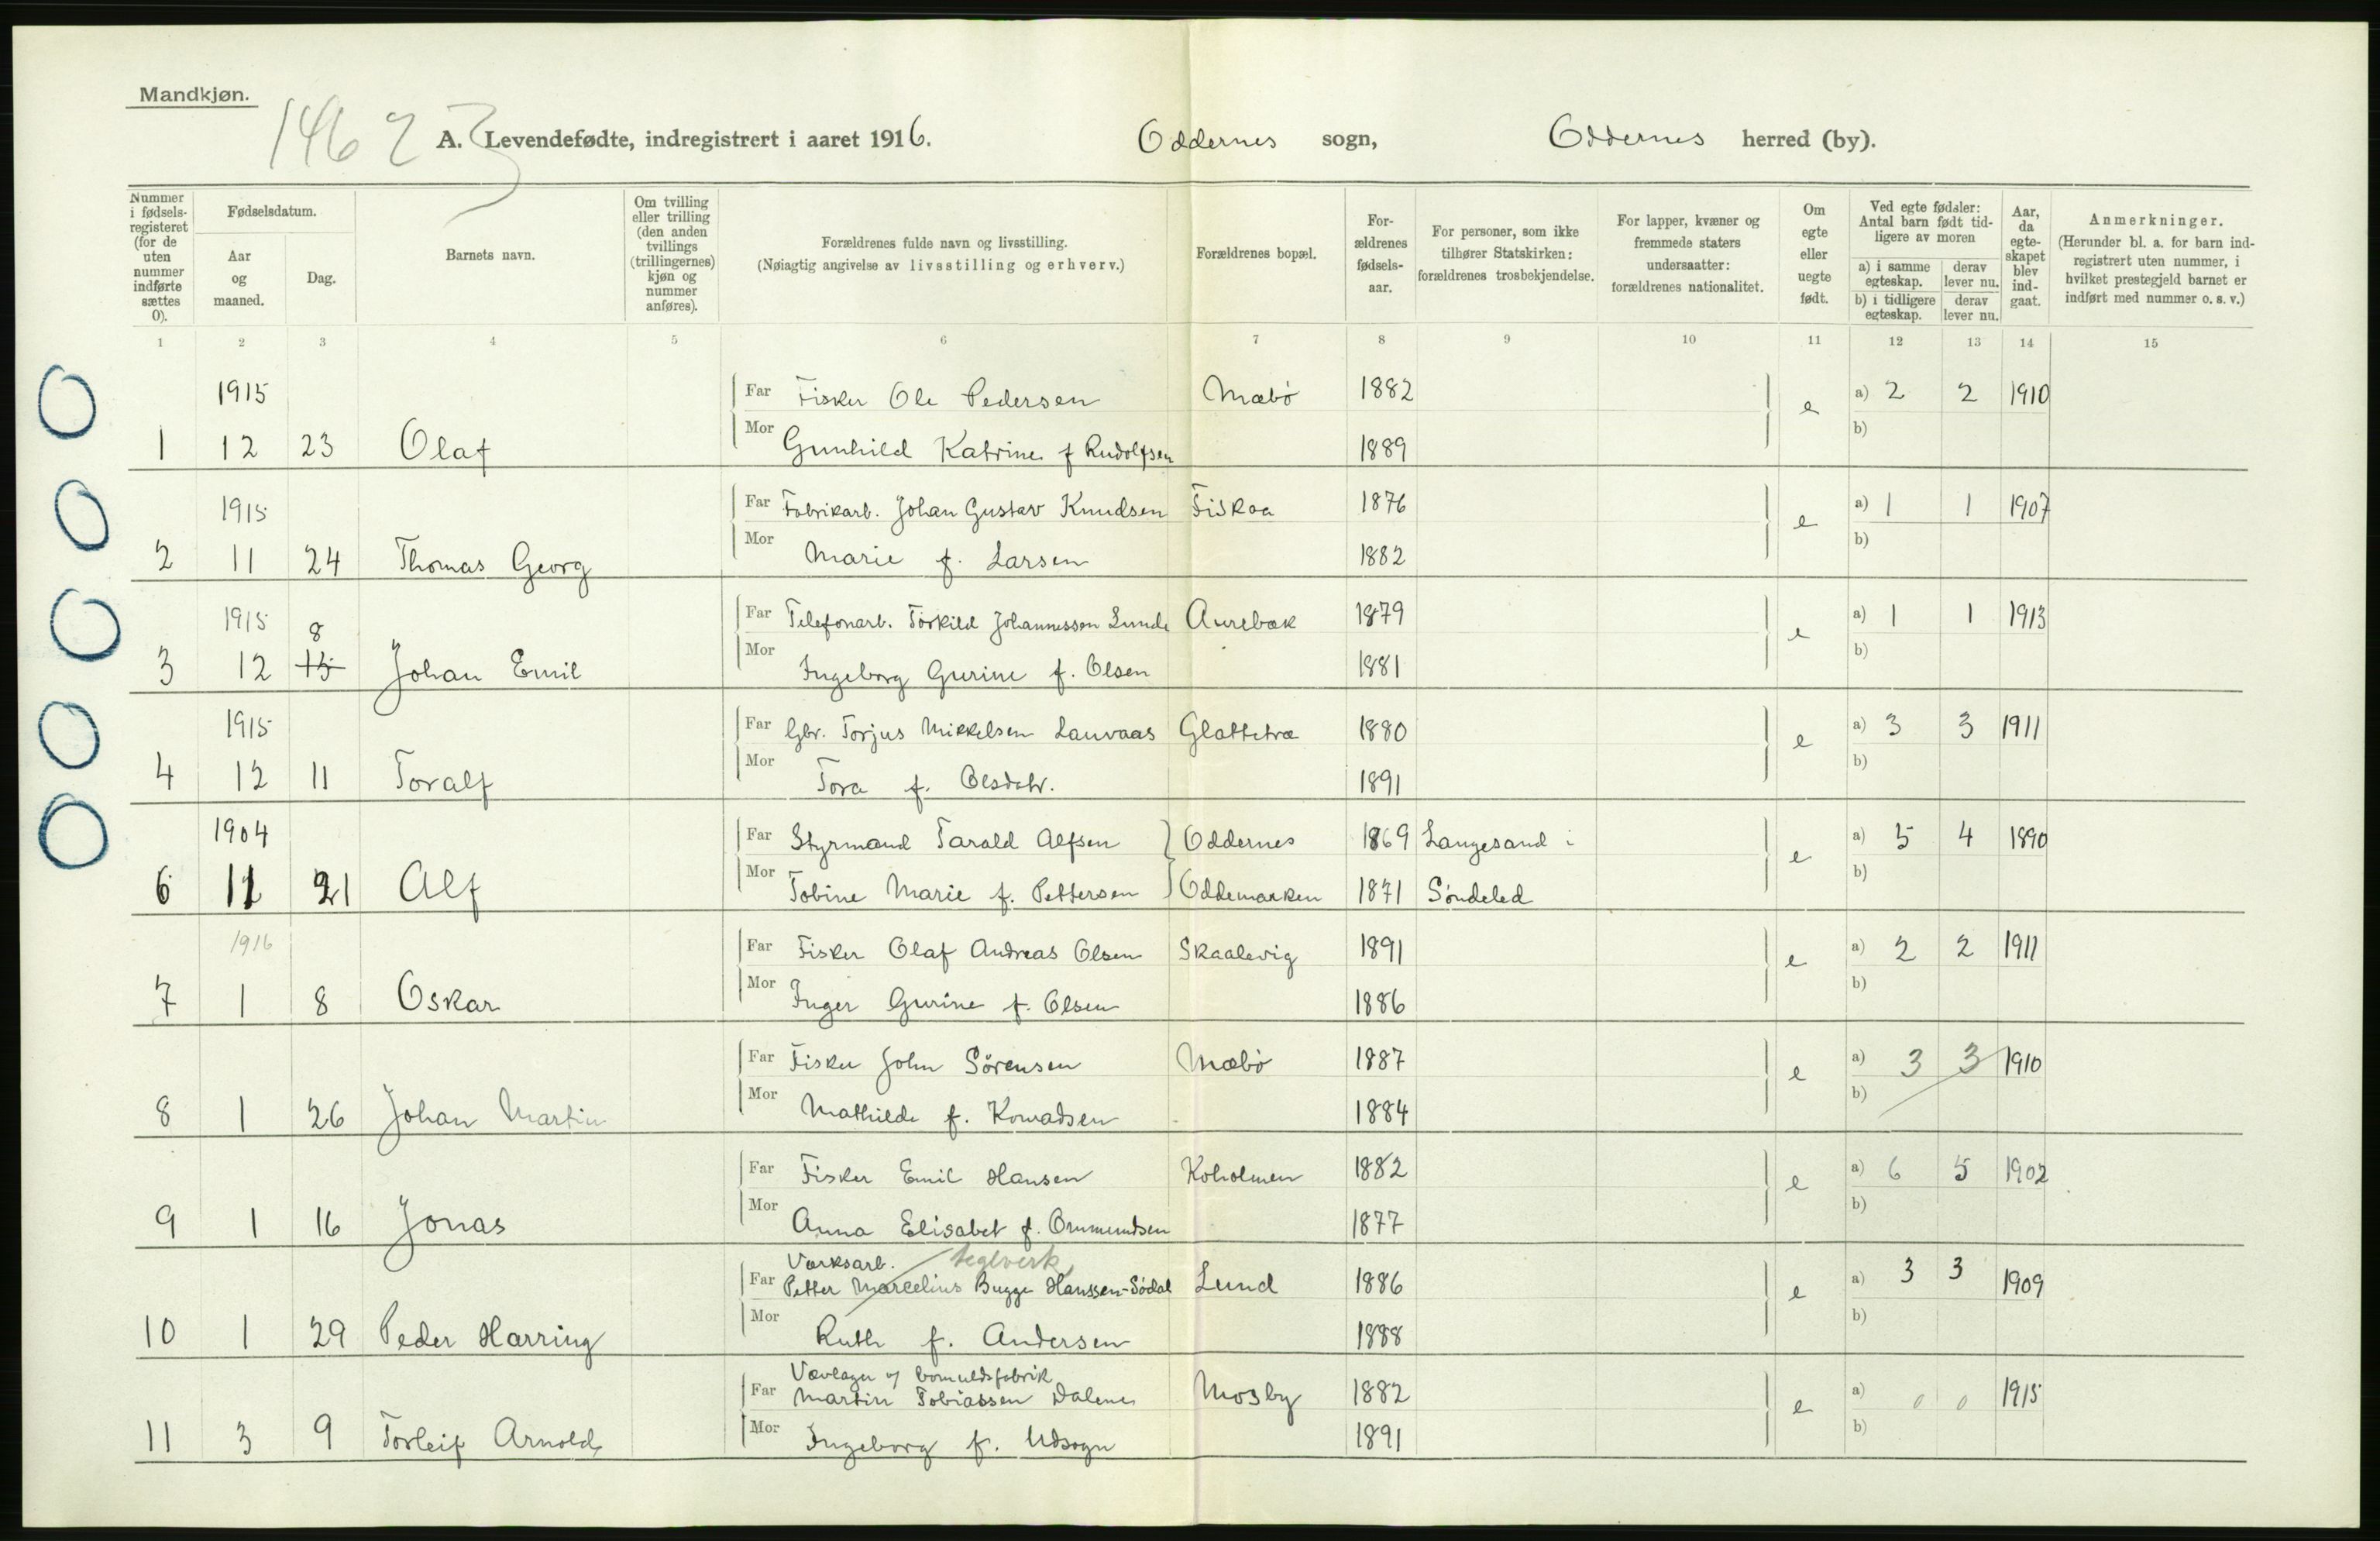 Mandkjøn.
1462 3
A. Levendefødte, indregistrert i aaret 1916. Oddernes sogn, Oddernes herred (by).
Nummer i fødsels-registeret (for de uten nummer indførte sættes 0).
Fødselsdatum.
Aar og maaned.
Dag.
Barnets navn.
Om tvilling eller trilling (den anden tvillings (trillingernes) kjøn og nummer anføres).
Forældrenes fulde navn og livsstilling.
(Nøiagtig angivelse av livsstilling og erhverv.)
Forældrenes bopæl.
For-ældrenes fødsels-aar.
For personer, som ikke tilhører Statskirken: forældrenes trosbekjendelse.
For lapper, kvæner og fremmede staters undersaatter: forældrenes nationalitet.
Om egte eller uegte født.
Ved egte fødsler: Antal barn født tid-ligere av moren
a) i samme egteskap. derav lever nu.
b) i tidligere egteskap. derav lever nu.
Aar, da egte-skapet blev ind-gaat.
Anmerkninger.
(Herunder bl. a. for barn ind-registrert uten nummer, i hvilket prestegjeld barnet er indført med nummer o. s. v.)
1 2 3 4 5 6 7 8 9 10 11 12 13 14 15
1915 Far Fisker Ole Pedersen Mæbø 1882 e a) 2 2 1910
1 12 23 Olaf Mor Gunhild Katrine f Rudolfsen 1889 b)
1915 Far Fabrikarb. Johan Gustav Knudsen Fiskaa 1876 e a) 1 1 1907
2 11 24 Thomas Georg Mor Marie f. Larsen 1882 b)
1915 8 Far Telefonarb. Torkild Johannessen Lunde Aurebæk 1879 e a) 1 1 1913
3 12 15 Johan Emil Mor Ingeborg Gurine f. Olsen 1881 b)
1915 Far Gbr. Torjus Mikkelsen Lauvaas Glattetræ 1880 e a) 3 3 1911
4 12 11 Toralf Mor Tora f. Olsdatr. 1891 b)
1904 Far Styrmand Tarald Alfsen Oddernes 1869 Langesand i e a) 5 4 1890
6 11 21 Alf Mor Tobine Marie f. Pettersen Oddemarken 1871 Søndeled b)
1916 Far Fisker Olaf Andreas Olsen Skaalevig 1891 e a) 2 2 1911
7 1 8 Oskar Mor Inger Gurine f. Olsen 1886 b)
Far Fisker John Sörensen Mæbø 1887 e a) 3 3 1910
8 1 26 Johan Martin Mor Mathilde f. Konradsen 1884 b)
Far Fisker Emil Hansen Koholmen 1882 e a) 6 5 1902
9 1 16 Jonas Mor Anna Elisabet f. Ommundsen 1877 b)
Værksarb. teglverk
Far Petter Marcelius Bugge Hanssen-Sødal Lund 1886 e a) 3 3 1909
10 1 29 Peder Harring Mor Ruth f. Andersen 1888 b)
Vævlager v/ bomuldsfabrik
Far Martin Tobiassen Dalene Mosby 1882 e a) 0 0 1915
11 3 9 Torleif Arnold Mor Ingeborg f. Udsogn 1891 b)